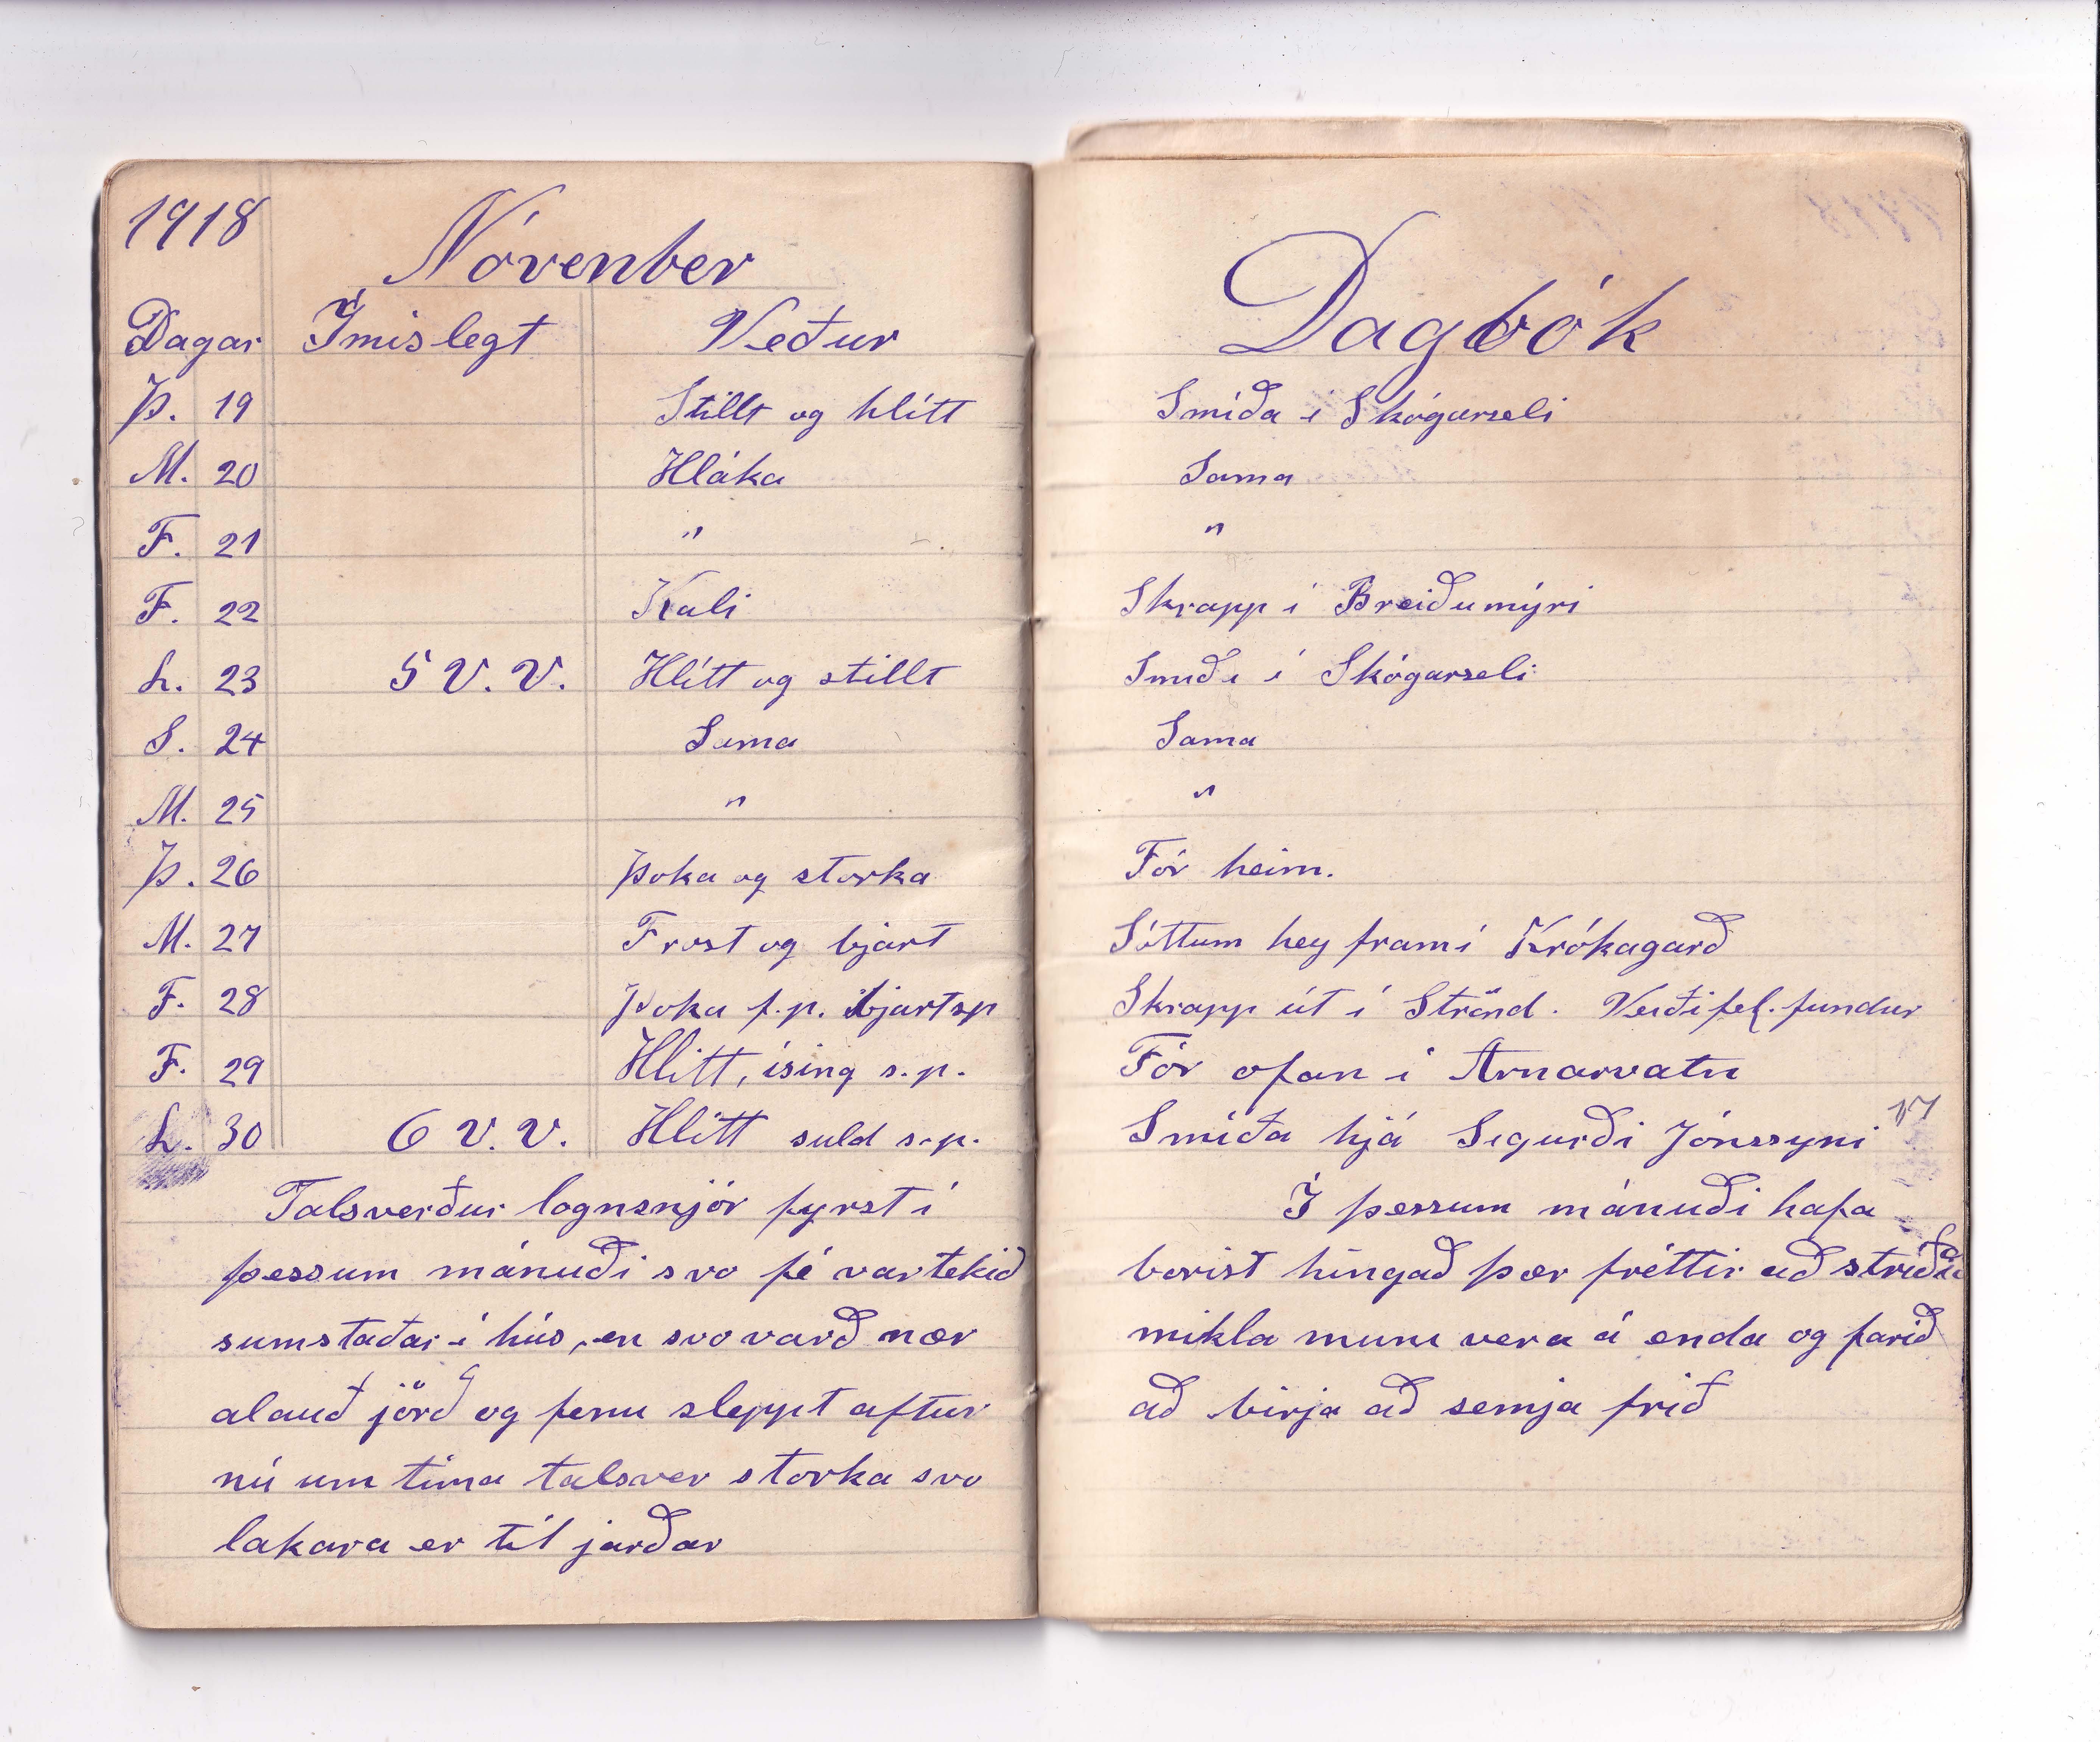 1918
Nóvenber
Dagar Ímislegt Veður
Þ. 19 Stillt og hlítt
M. 20 Hláka
F. 21 "
F. 22 Kali
L. 23 5 V. V. Hlítt og stillt
S. 24 Sama
M. 25 "
Þ. 26 Þoka og storka
M. 27 Frost og bjart
F. 28 Þoka f.p. bjart sp
F. 29 Hlítt, ísing s.p.
L. 30 6 V. V. Hlítt suld s.p.
Talsverður lognsnjór fyrst í
þessum mánuði svo fé var tekið
sumstaðar í hús, en svo varð nær
alauð jörð og fenu sleppt aftur
nú um tíma talsver storka svo
lakara er til jarðar
Dagbók
Smíða í Skógarseli
Sama
"
Skrapp í Breiðumýri
Smíða í Skógarseli
Sama
"
Fór heim.
Sóttum hey frami Krókagarð
Skrapp út í Strönd. Veiðifel. fundur
Fór ofan í Arnarvatn
Smíða hjá Sigurði Jónssyni 17
Í þessum mánuði hafa
borist hingað þær fréttir að stríðið
mikla muni vera á enda og farið
að birja að semja frið